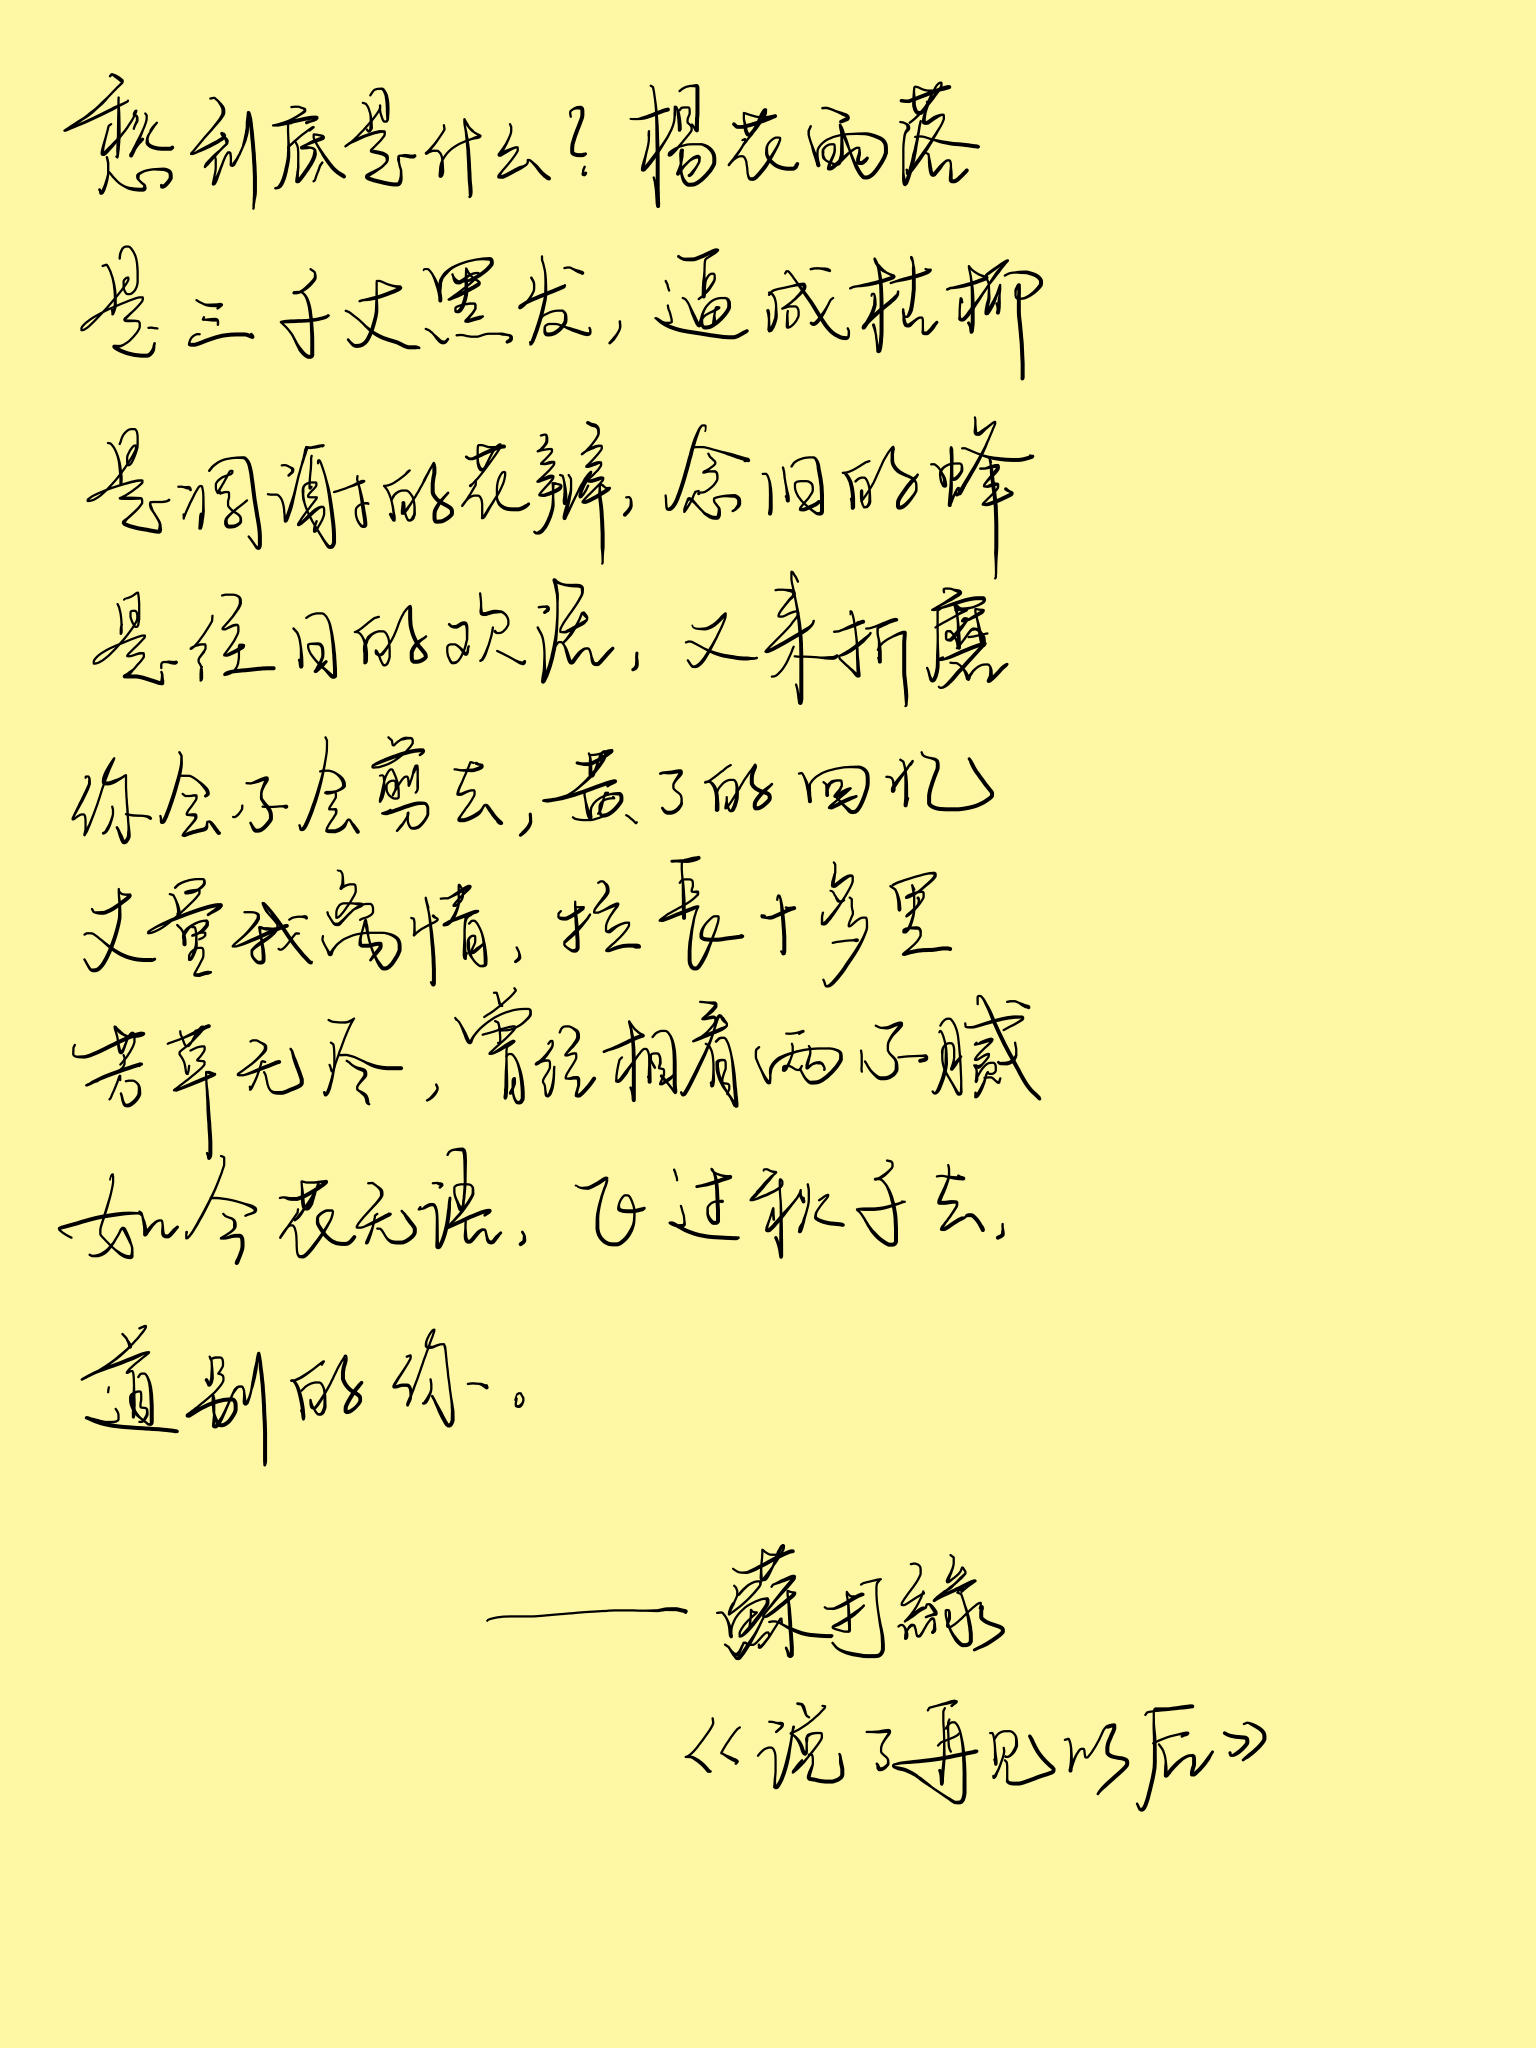 愁到底是什么？楊花雨落
是三千丈黑发，逼成枯柳
是凋谢的花瓣，念旧的蜂
是往日的欢流，又来折磨
你会不会剪去，黄了的回忆
丈量我离情，拉長十多里
芳草无尽，曾经相看两不腻
如今花无语，飞过秋千去，
道别的你。
——蘇打綠
《说了再见以后》